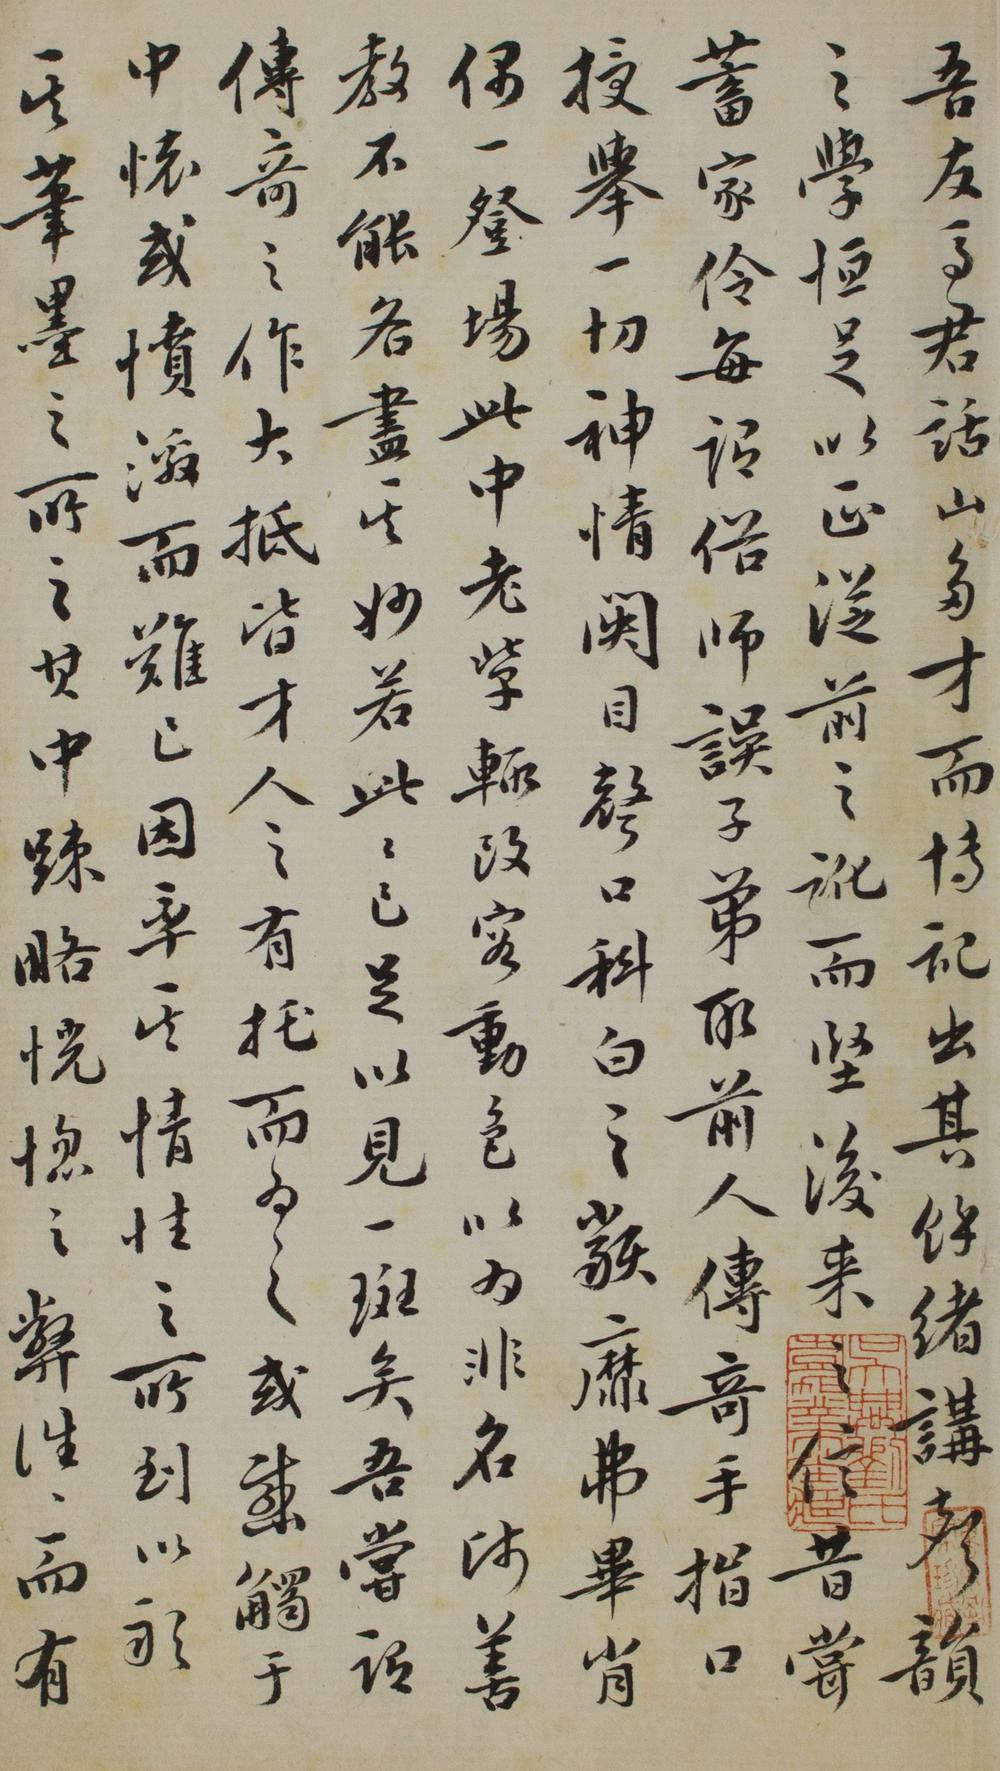 吾友馮君話山多才而博記出其餘緒講聲韻
之學恒足以正從前之訛而堅後来之信昔嘗
蓄家伶每謂俗師誤子弟取前人傳奇手指口
授舉一切神情関目聲口科白之類靡弗畢肖
偶一登場此中老學輒改容動色以為非名師善
教不能各盡其妙若此此已足以見一斑矣吾嘗謂
傳奇之作大抵皆才人之有托而為之或感觸于
中懷或憤激而難已因率其情性之所到以形
其筆墨之所之其中踈略恍惚之弊往往而有